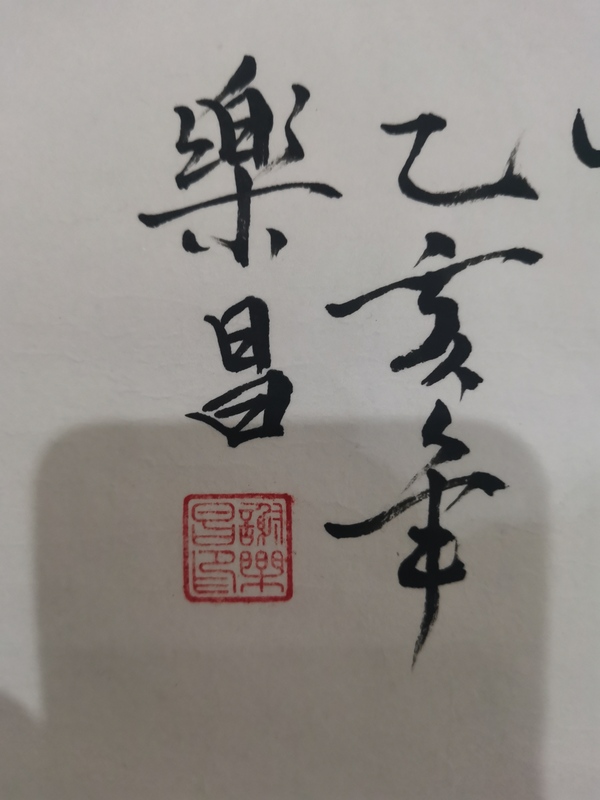 乙亥年
樂昌
謝樂昌印